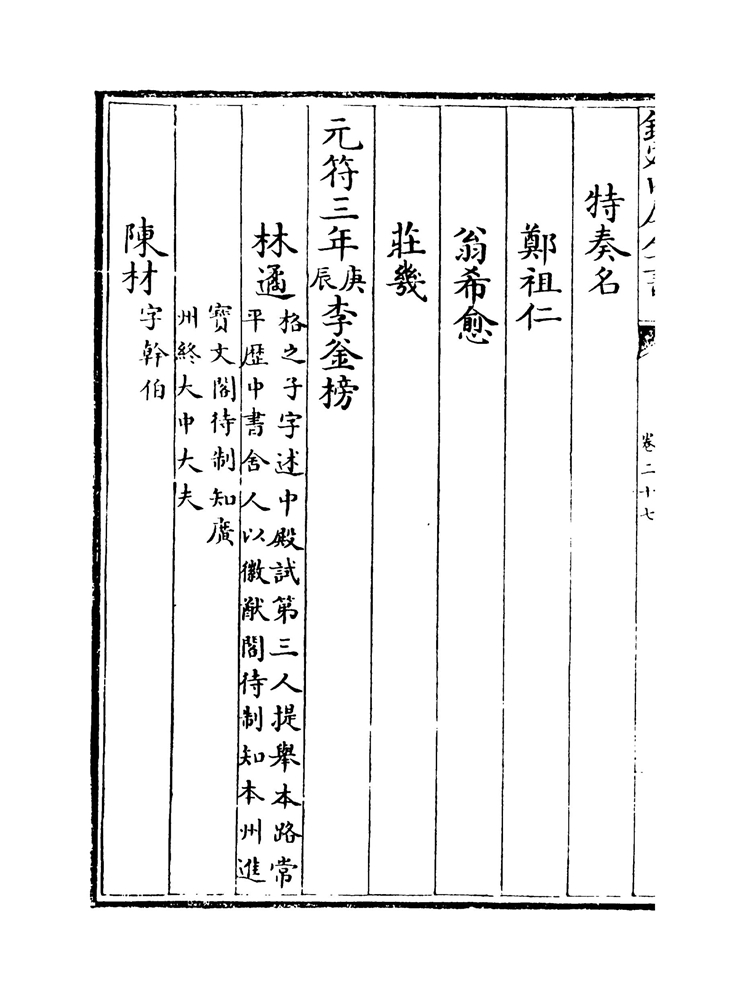 欽定四庫全書
卷二十七
特奏名
鄭祖仁
翁希愈
莊幾
元符三年庚辰李釜榜
林遹格之子字述中殿試第三人提舉本路常
平歷中書舍人以徽猷閣待制知本州進
寶文閣待制知廣
州終大中大夫
陳材字幹伯